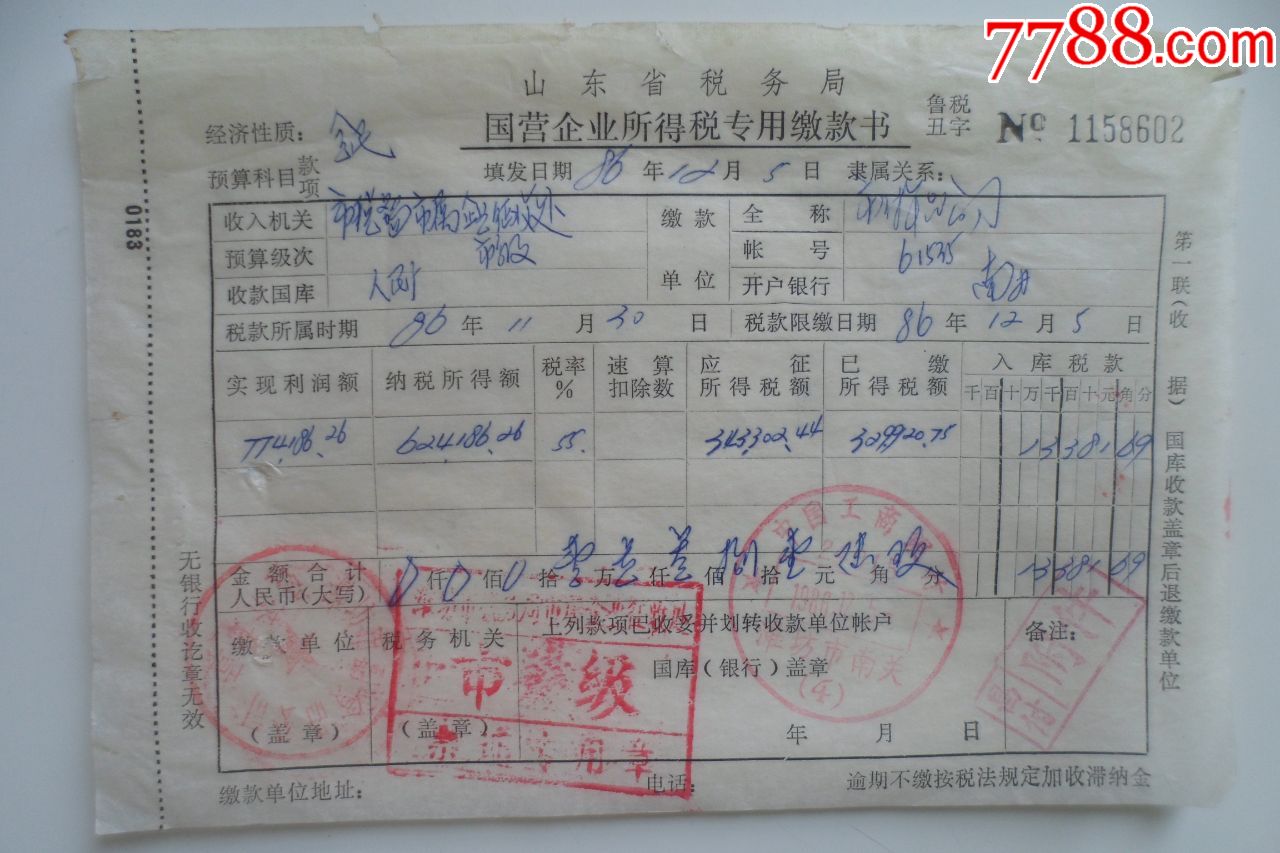 7788.com
山东省税务局
国营企业所得税专用缴款书
鲁税
丑字
No 1158602
经济性质：
预算科目 款 项
填发日期 86 年 12 月 5 日 隶属关系：
收入机关 市税
缴款单位
全称
预算级次 市级
帐号 61535
收款国库 人民
开户银行 南
税款所属时期 86 年 11 月 30 日
税款限缴日期 86 年 12 月 5 日
实现利润额 纳税所得额 税率% 速算扣除数 应征所得税额 已缴所得税额 入库税款
千百十万千百十元角分
774186.26 624186.26 55 343302.44 329920.75 1338169
金额合计人民币(大写) 仟 佰 拾 壹 万 叁 仟 叁 佰 捌 拾 壹 元 陆 角 玖 分 1338169
缴款单位
(盖章)
税务机关
(盖章)
上列款项已收妥并划转收款单位帐户
国库(银行)盖章
年 月 日
备注：
市 级
专用章
中国工商
潍坊市南关
(4)
附件
缴款单位地址：
电话：
逾期不缴按税法规定加收滞纳金
无银行收讫章无效
第一联(收据)国库收款盖章后退缴款单位
0183